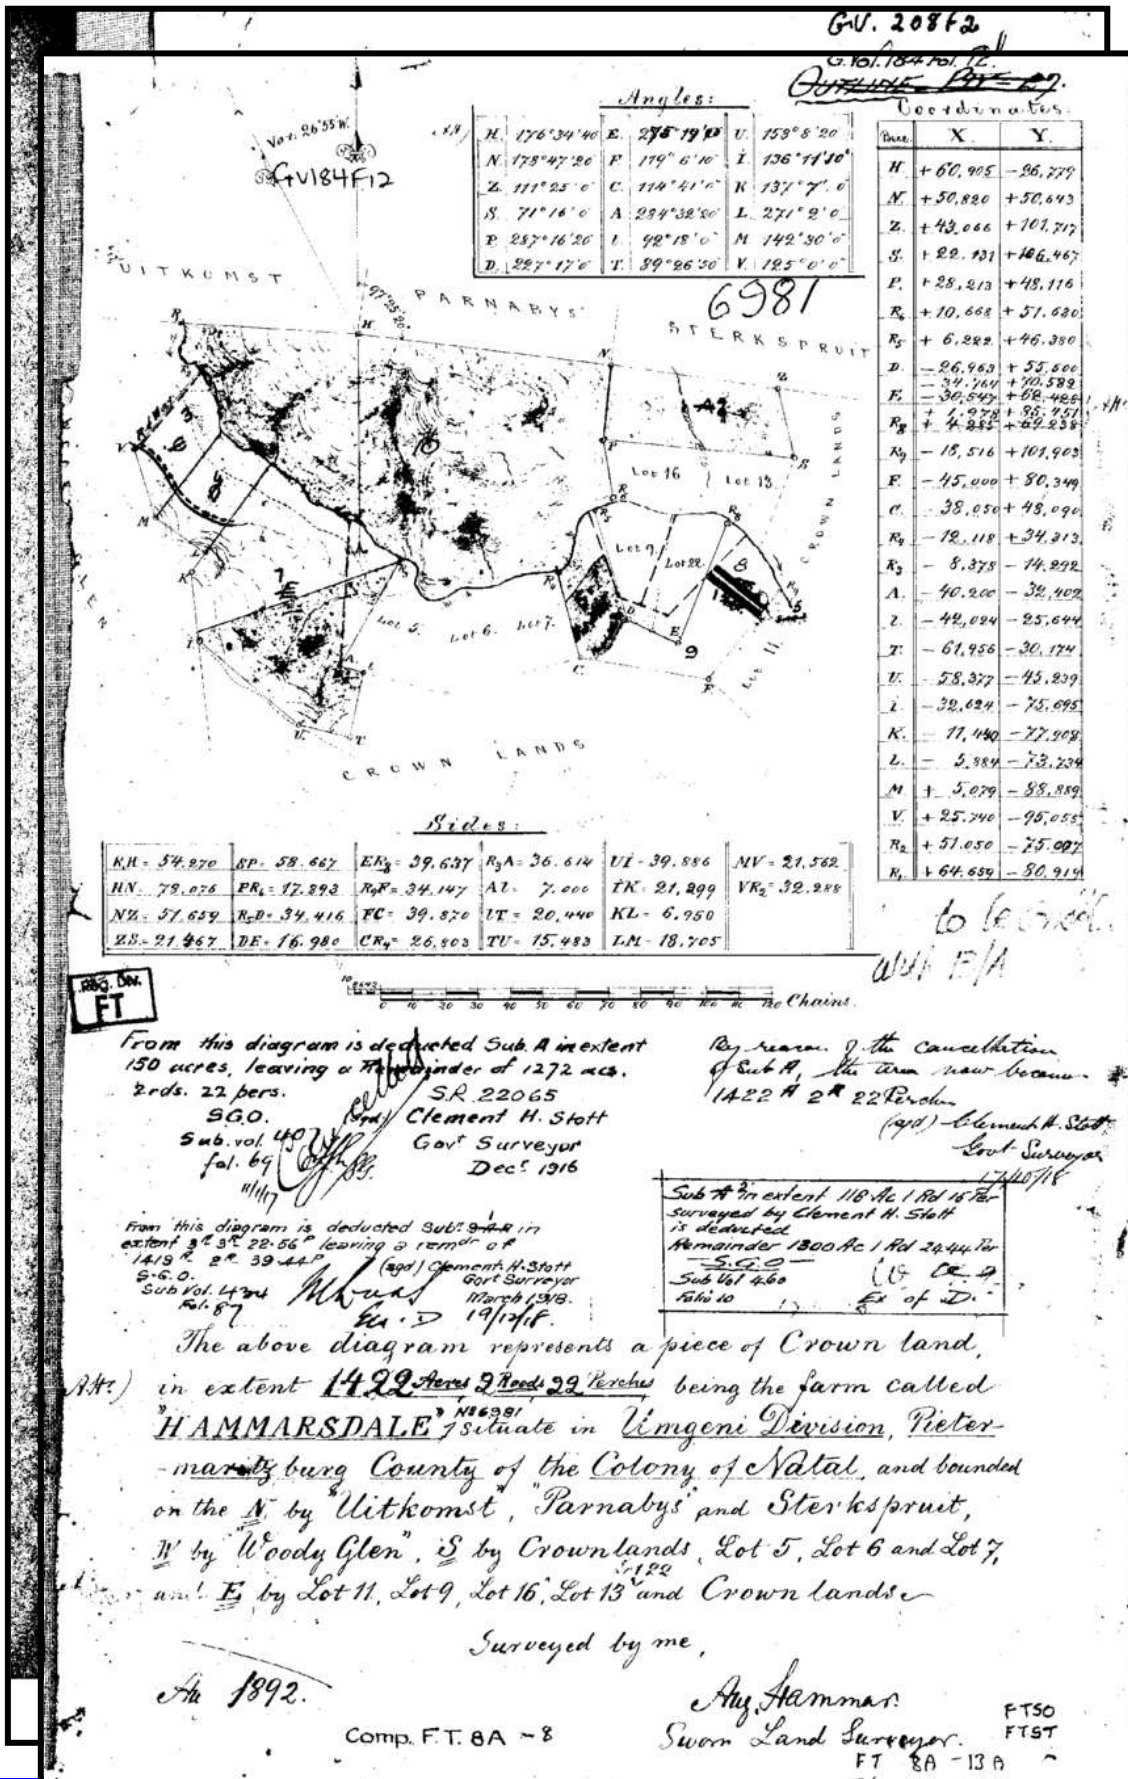 G.V. 208F2
G.Vol.184 Fol. 12.
OUTLINE
Var. 26°55'W.
GV184F12
Angles:
H. 176°34'40 E. 275°19'0 U. 153°8'20
N. 178°47'20 F. 119°6'10 I. 136°11'10"
Z. 111°25'0 C. 114°41'0 K 137°7'.0
S. 71°16'0 A 284°32'20 L. 271°2'0
P. 287°16'20 l. 92°18'0 M 142°30'0
D. 227°17'0 T. 89°26'50 V. 125°0'0
6981
Coordinates.
X. Y.
H + 60,905 - 26,779
N. + 50,820 + 50,643
Z. + 43,066 + 101,717
S. + 22,131 + 106,467
P. + 28,213 + 48,116
R6 + 10,668 + 51,630
R5 + 6,222 + 46,380
D - 26,963 + 55,500
- 34,764 + 70,582
E. - 30,547 + 62,428
+ 1,978 + 85,451
R8 + 4,285 + 69,238
R9 - 18,516 + 101,903
F. - 45,000 + 80,349
C. - 38,050 + 48,090
R4 - 12,118 + 34,213
R3 - 8,378 - 14,292
A. - 40,200 - 32,402
l. - 42,024 - 25,644
T. - 61,956 - 30,174
U. - 58,377 - 45,239
I. - 32,624 - 75,695
K. - 11,440 - 77,908
L. - 5,884 - 73,734
M + 5,079 - 88,889
V. + 25,740 - 95,055
R2 + 51,050 - 75,007
R1 + 64,659 - 80,914
UITKOMST
PARNABYS'
STERKSPRUIT
97°25'20"
H
N
Z
S
Lot 16
Lot 13
CROWN LANDS
Lot 9
Lot 22
Lot 5.
Lot 6.
Lot 7.
Lot 11
CROWN LANDS
Sides:
R1H = 54.270 SP = 58.667 ER8 = 39.637 R3A = 36.614 UI = 39.886 MV = 21.562
HN. 78.076 PR6 = 17.893 R9F = 34.147 Al = 7.000 IK = 21.299 VR2 = 32.288
NZ = 51.659 R5D = 34.416 FC = 39.870 lT = 20.440 KL = 6.950
ZS = 21.467 DE = 16.980 CR4 = 26.803 TU = 15.483 LM = 18.705
to be
with
Reg. Div.
FT
10 0 10 20 30 40 50 60 70 80 90 100 110 120 Chains.
From this diagram is deducted Sub. A in extent
150 acres, leaving a Remainder of 1272 acs.
2 rds. 22 pers.
S.R. 22065
S.G.O.
(sgd) Clement H. Stott
Sub. vol. 407
Govt Surveyor
fol. 69
Decr 1916
11/1/17
By reason of the cancellation
of Sub A, the area now becomes
1422 A 2 R 22 Perches
(sgd) Clement H. Stott
Govt Surveyor
17/10/18
From this diagram is deducted Sub in
extent 3a 3r 22.56p leaving a remdr of
1418 A 2R 39.44P
(sgd) Clement H. Stott
S.G.O.
Govt Surveyor
Sub Vol. 434
March 1918.
Fol. 87
19/12/18.
Sub A2 in extent 118 Ac 1 Rd 15 Per
surveyed by Clement H. Stott
is deducted
Remainder 1300 Ac 1 Rd 24.44 Per
S.G.O
Sub Vol 460
Folio 10
Ex of D.
The above diagram represents a piece of Crown land,
in extent 1422 Acres 2 Roods 22 Perches being the farm called
"HAMMARSDALE" No 6981, situate in Umgeni Division, Pieter-
-maritzburg County of the Colony of Natal, and bounded
on the N. by "Uitkomst", "Parnabys" and Sterkspruit,
W by "Woody Glen", S by Crownlands, Lot 5, Lot 6 and Lot 7,
and E by Lot 11, Lot 9, Lot 16, Lot 13 and Crown lands
Surveyed by me,
1892.
Aug. Hammar.
Sworn Land Surveyor.
Comp. F.T. 8A - 8
FTSO
FTST
FT 8A - 13A